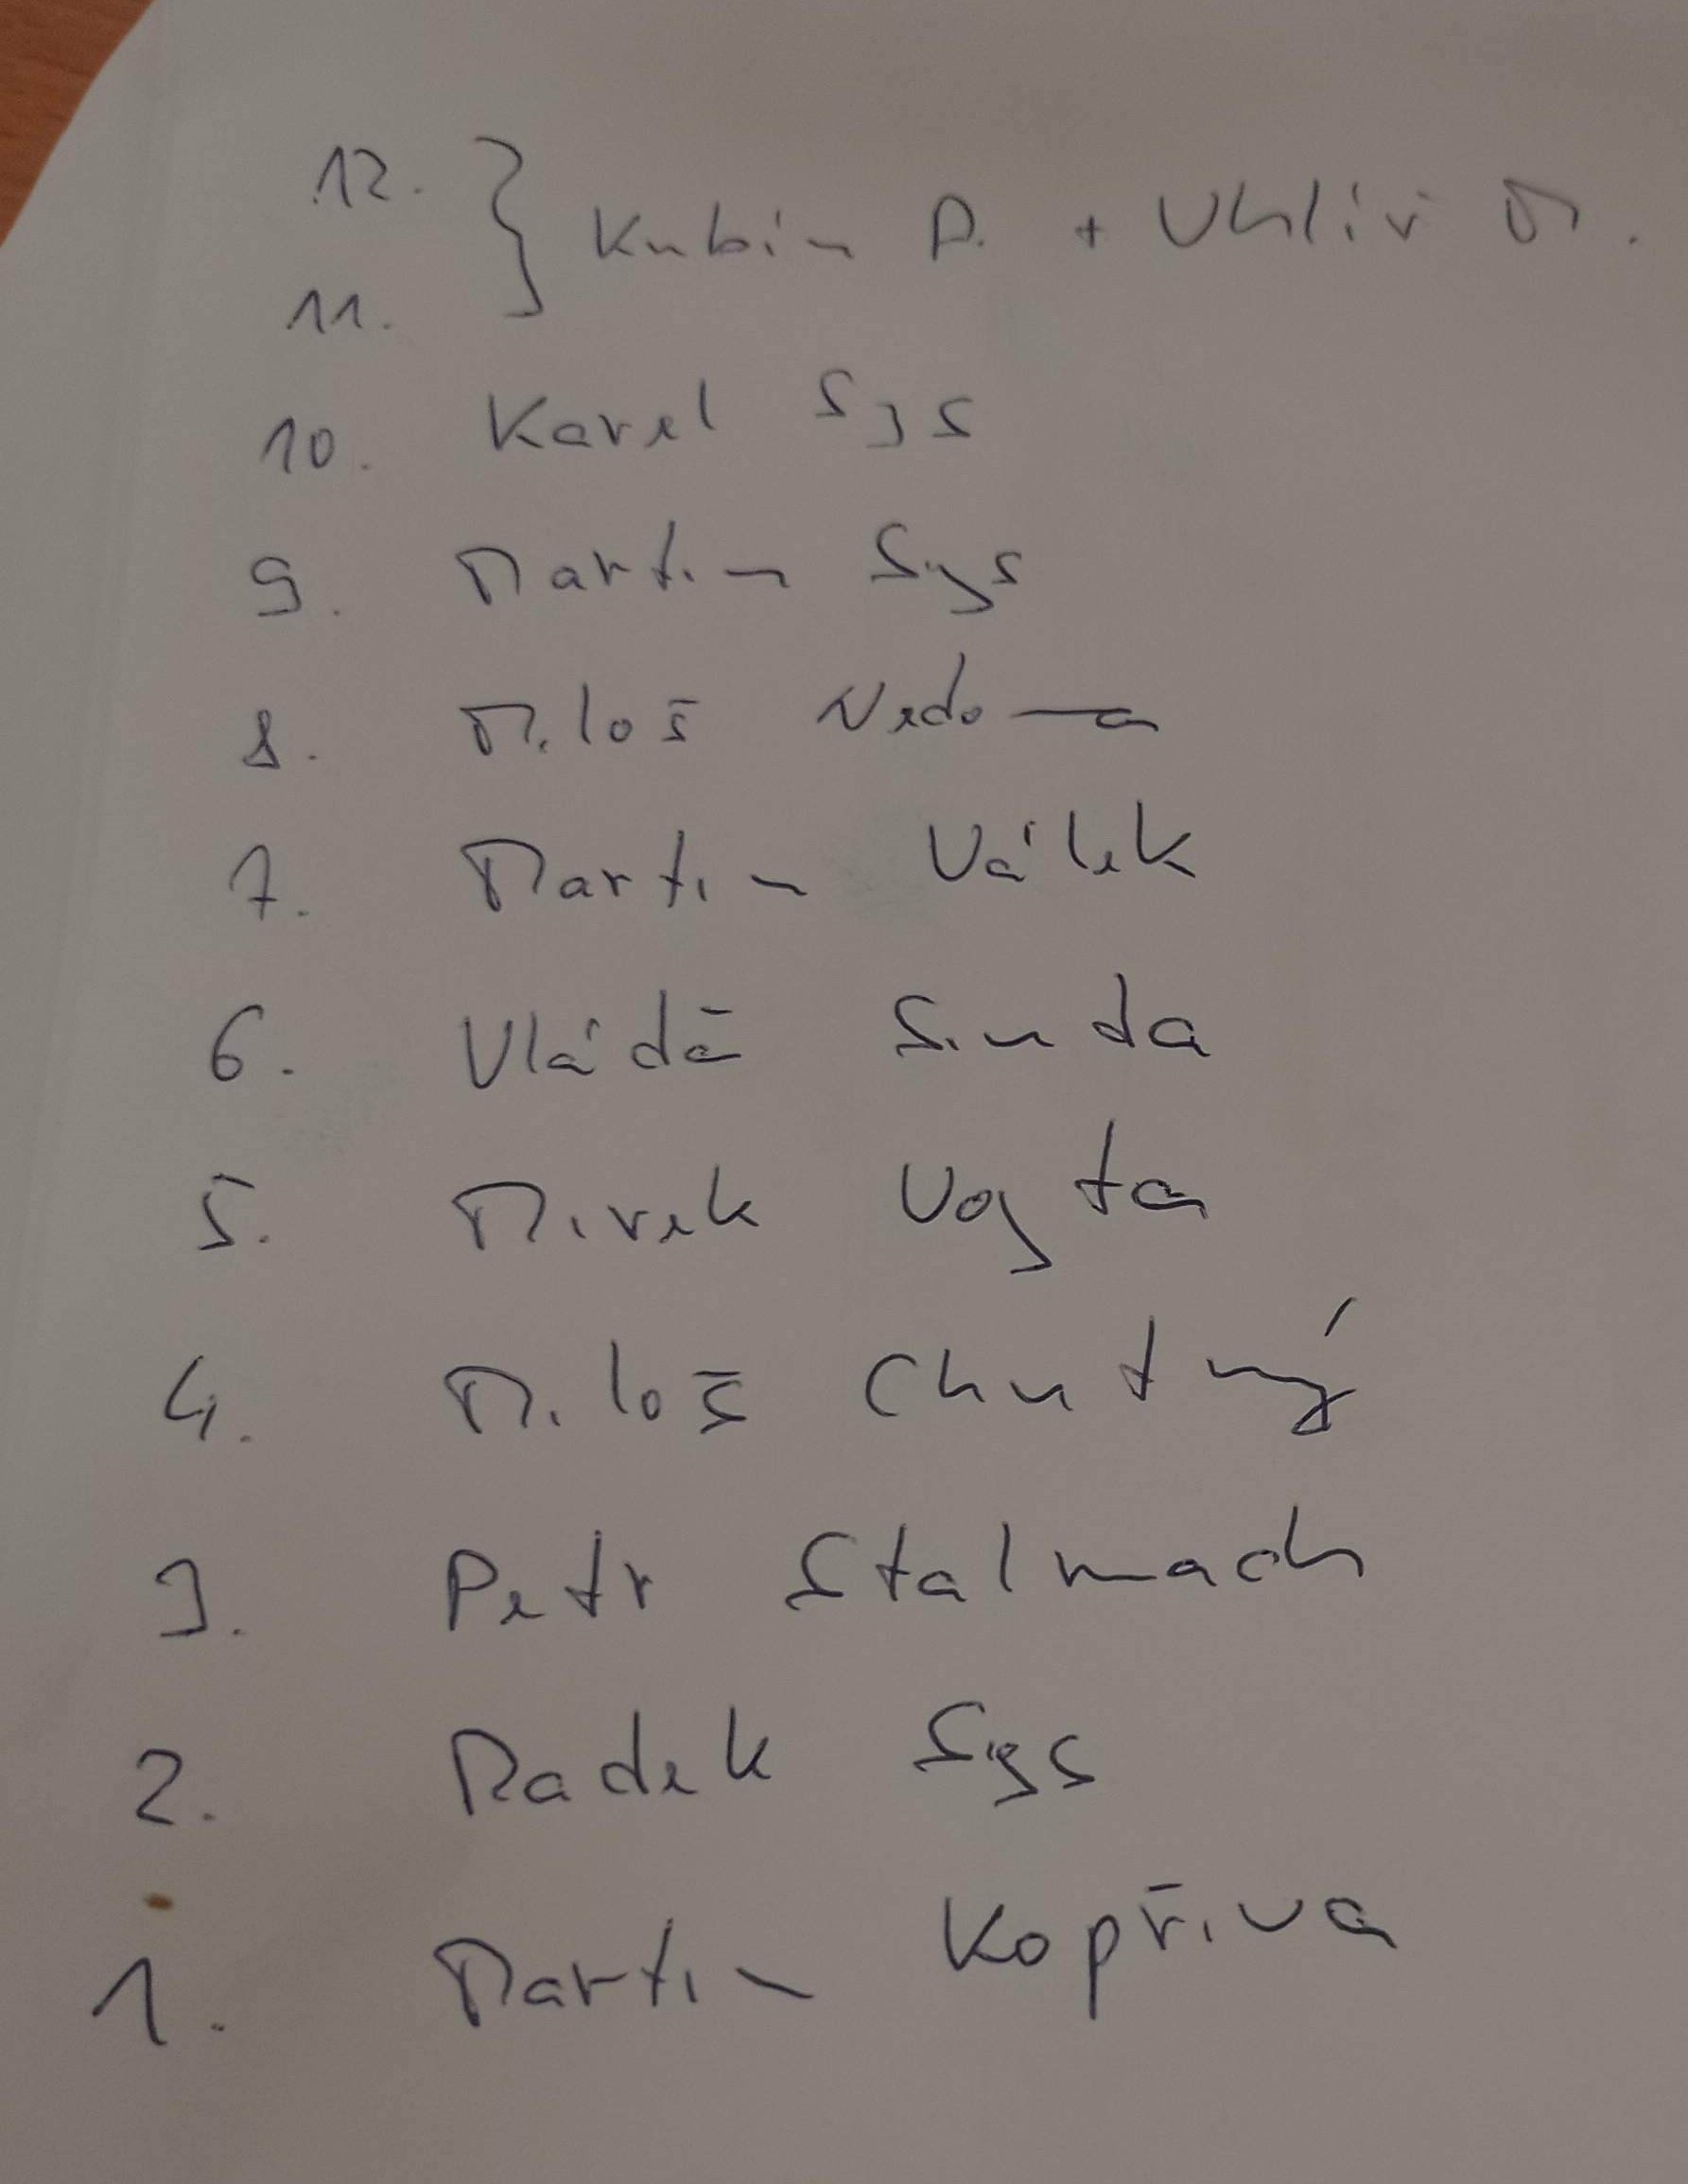 12. } Kubin P. + Uhlíř M.
11.
10. Karel Sys
9. Martin Sys
8. Miloš Nedoma
7. Martin Válek
6. Vláďa Sinda
5. Mirek Vojta
4. Miloš Chutný
3. Petr Stalmach
2. Radek Sys
1. Martin Kopřiva